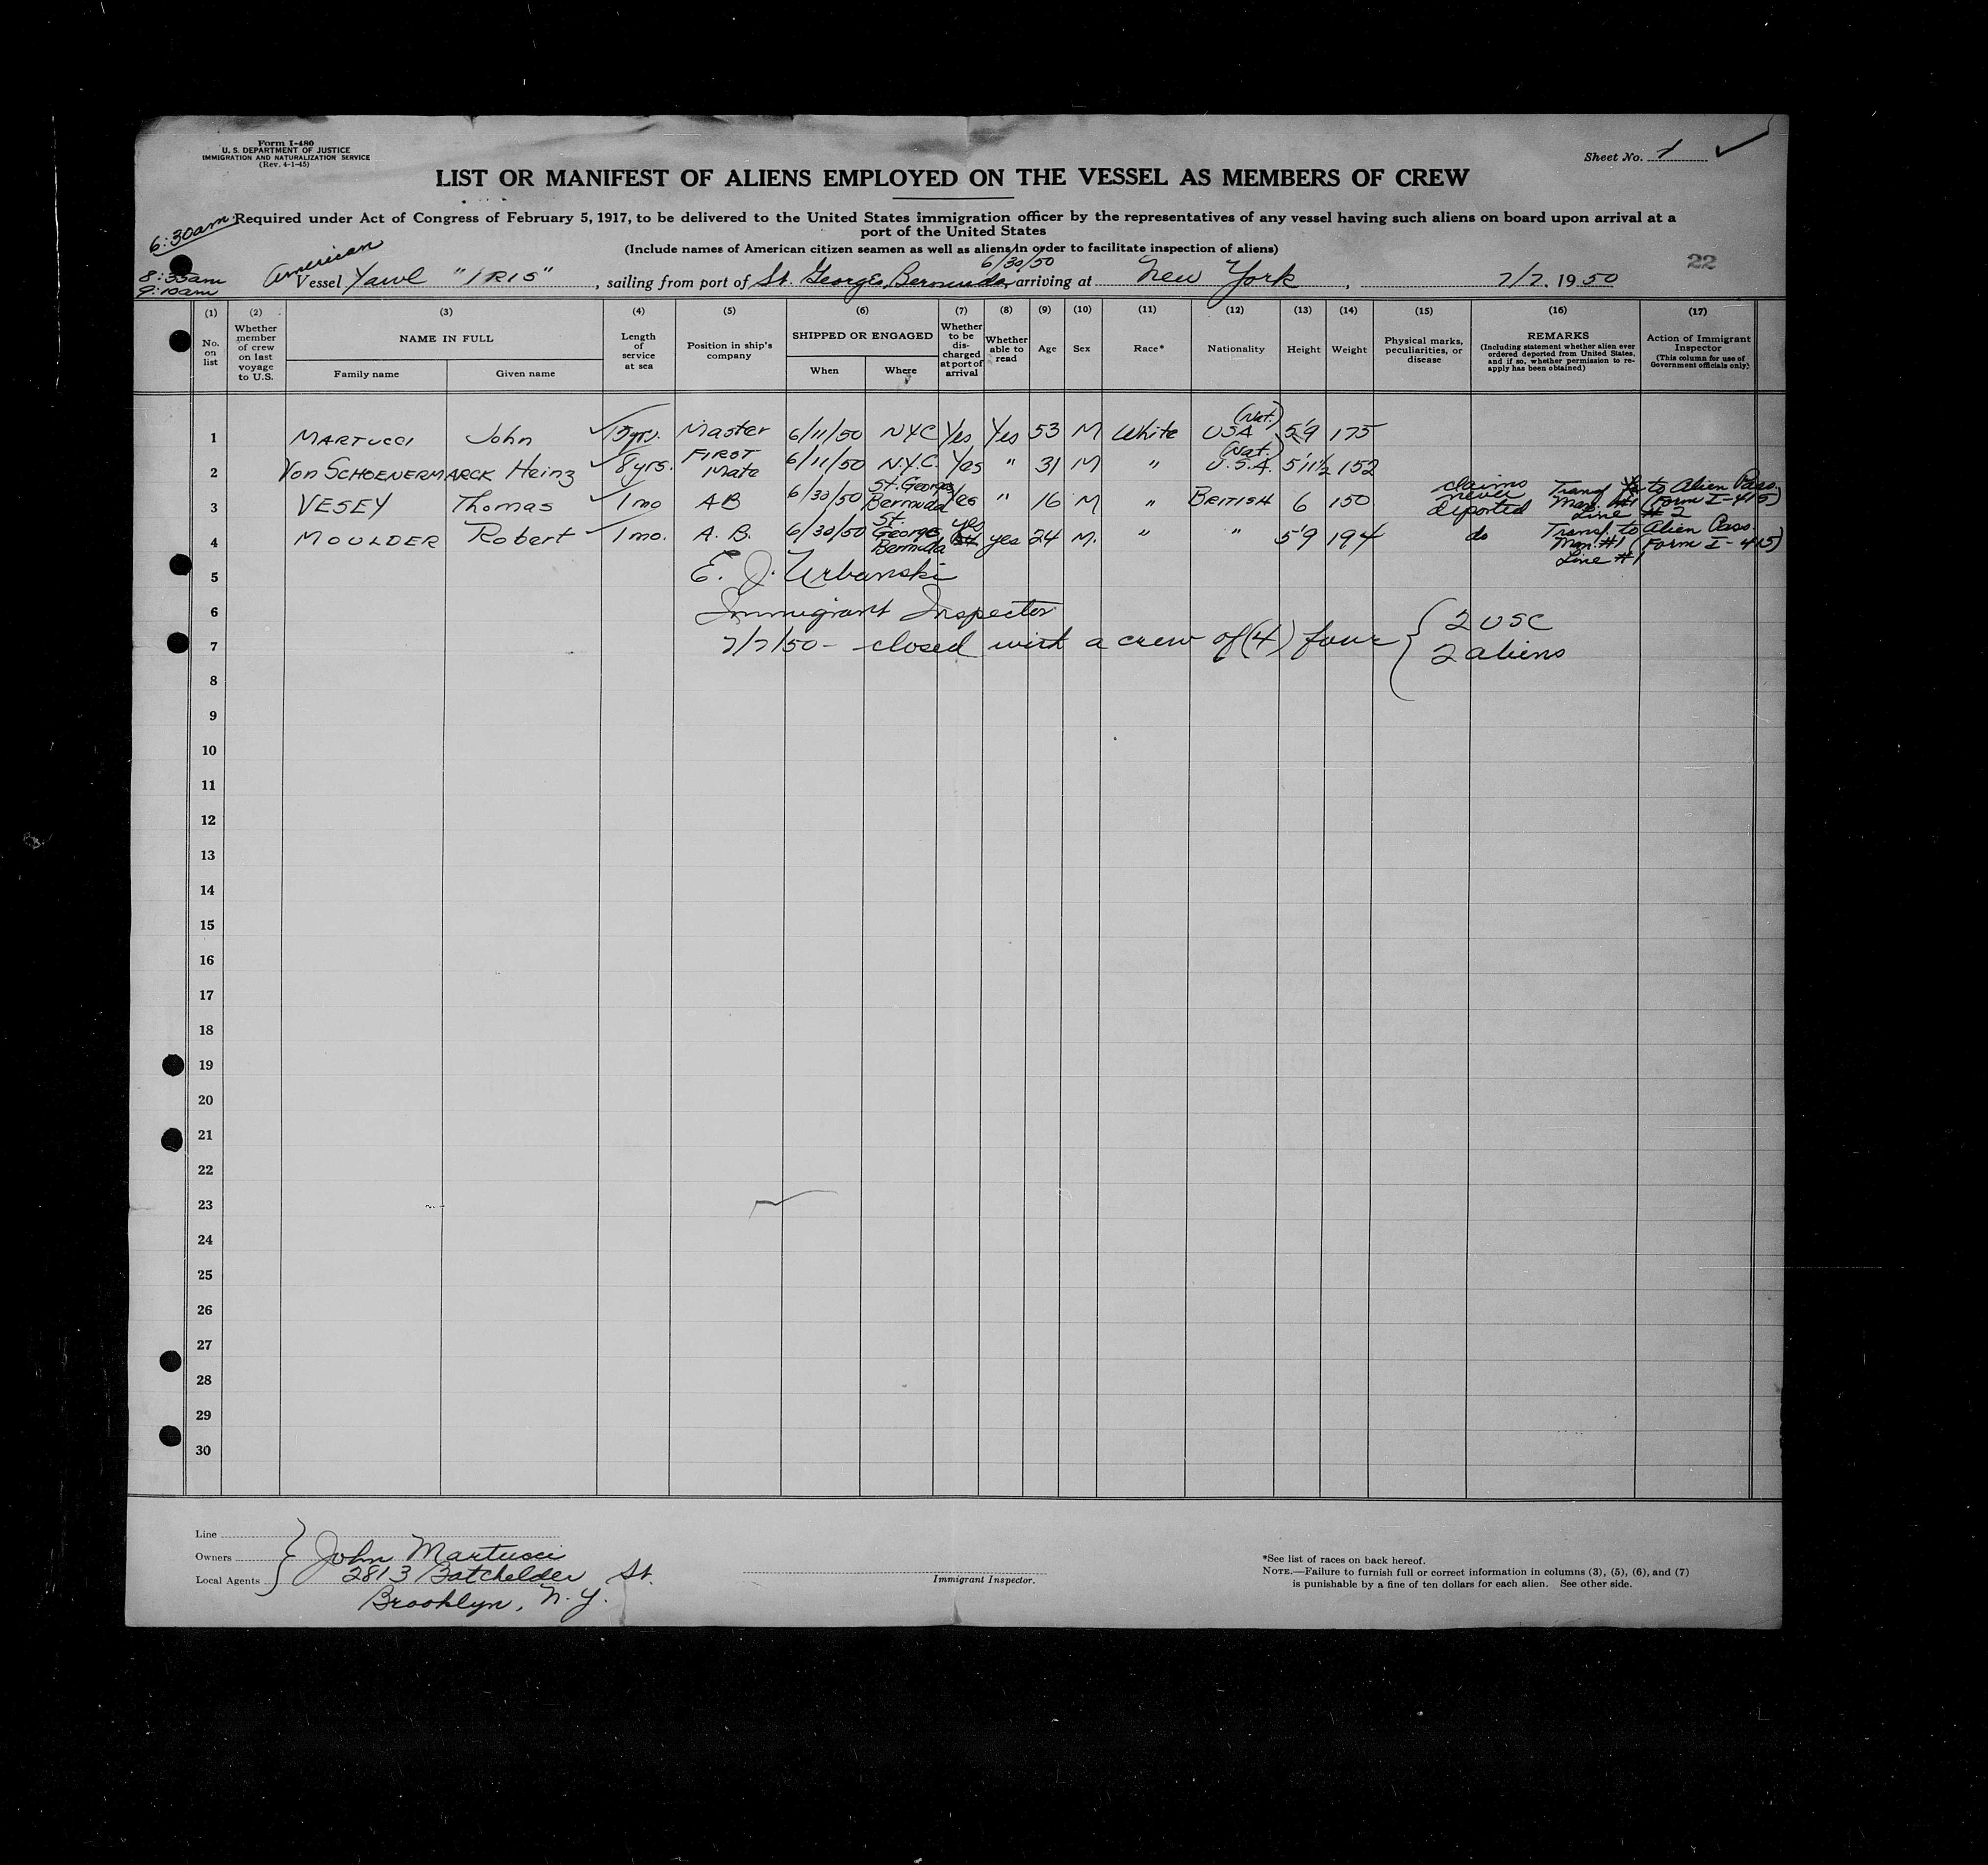 Form I-480
U. S. DEPARTMENT OF JUSTICE
IMMIGRATION AND NATURALIZATION SERVICE
(Rev. 4-1-45)
Sheet No. 1
LIST OR MANIFEST OF ALIENS EMPLOYED ON THE VESSEL AS MEMBERS OF CREW
6:30am Required under Act of Congress of February 5, 1917, to be delivered to the United States immigration officer by the representatives of any vessel having such aliens on board upon arrival at a
port of the United States
(Include names of American citizen seamen as well as aliens in order to facilitate inspection of aliens)
8:35am
9:10am
American
6/30/50
22
Vessel Yawl "IRIS", sailing from port of St. Georges, Bermuda, arriving at New York, 7/7. 1950
(1) (2) (3) (4) (5) (6) (7) (8) (9) (10) (11) (12) (13) (14) (15) (16) (17)
No. on list
Whether member of crew on last voyage to U.S.
NAME IN FULL
Family name
Given name
Length of service at sea
Position in ship's company
SHIPPED OR ENGAGED
When
Where
Whether to be discharged at port of arrival
Whether able to read
Age
Sex
Race*
Nationality
Height
Weight
Physical marks, peculiarities, or disease
REMARKS
(Including statement whether alien ever ordered deported from United States, and if so, whether permission to re-apply has been obtained)
Action of Immigrant Inspector
(This column for use of Government officials only)
1 MARTUCCI John 15yrs. Master 6/11/50 NYC Yes Yes 53 M White (Nat.) USA 5'9 175
2 Von SCHOENERMARCK Heinz 8yrs. FIRST Mate 6/11/50 N.Y.C. Yes " 31 M " (Nat.) U.S.A. 5'11½ 152
3 VESEY Thomas 1mo AB 6/30/50 St. Georges Bermuda Yes " 16 M " BRITISH 6 150 claims never deported Transf. to Alien Pass. Man. #1 (Form I-415) Line #2
4 MOULDER Robert 1mo. A.B. 6/30/50 St. George Bermuda yes yes 24 M. " " 5'9 194 do Transf. to Alien Pass. Man. #1 (Form I-415) Line #1
5 E. J. Urbanski
6 Immigrant Inspector
7 7/7/50 - closed with a crew of (4) four { 2 USC
2 aliens
8
9
10
11
12
13
14
15
16
17
18
19
20
21
22
23
24
25
26
27
28
29
30
Line
Owners
Local Agents
John Martucci
2813 Batchelder St.
Brooklyn, N.Y.
Immigrant Inspector.
*See list of races on back hereof.
NOTE.—Failure to furnish full or correct information in columns (3), (5), (6), and (7)
is punishable by a fine of ten dollars for each alien. See other side.